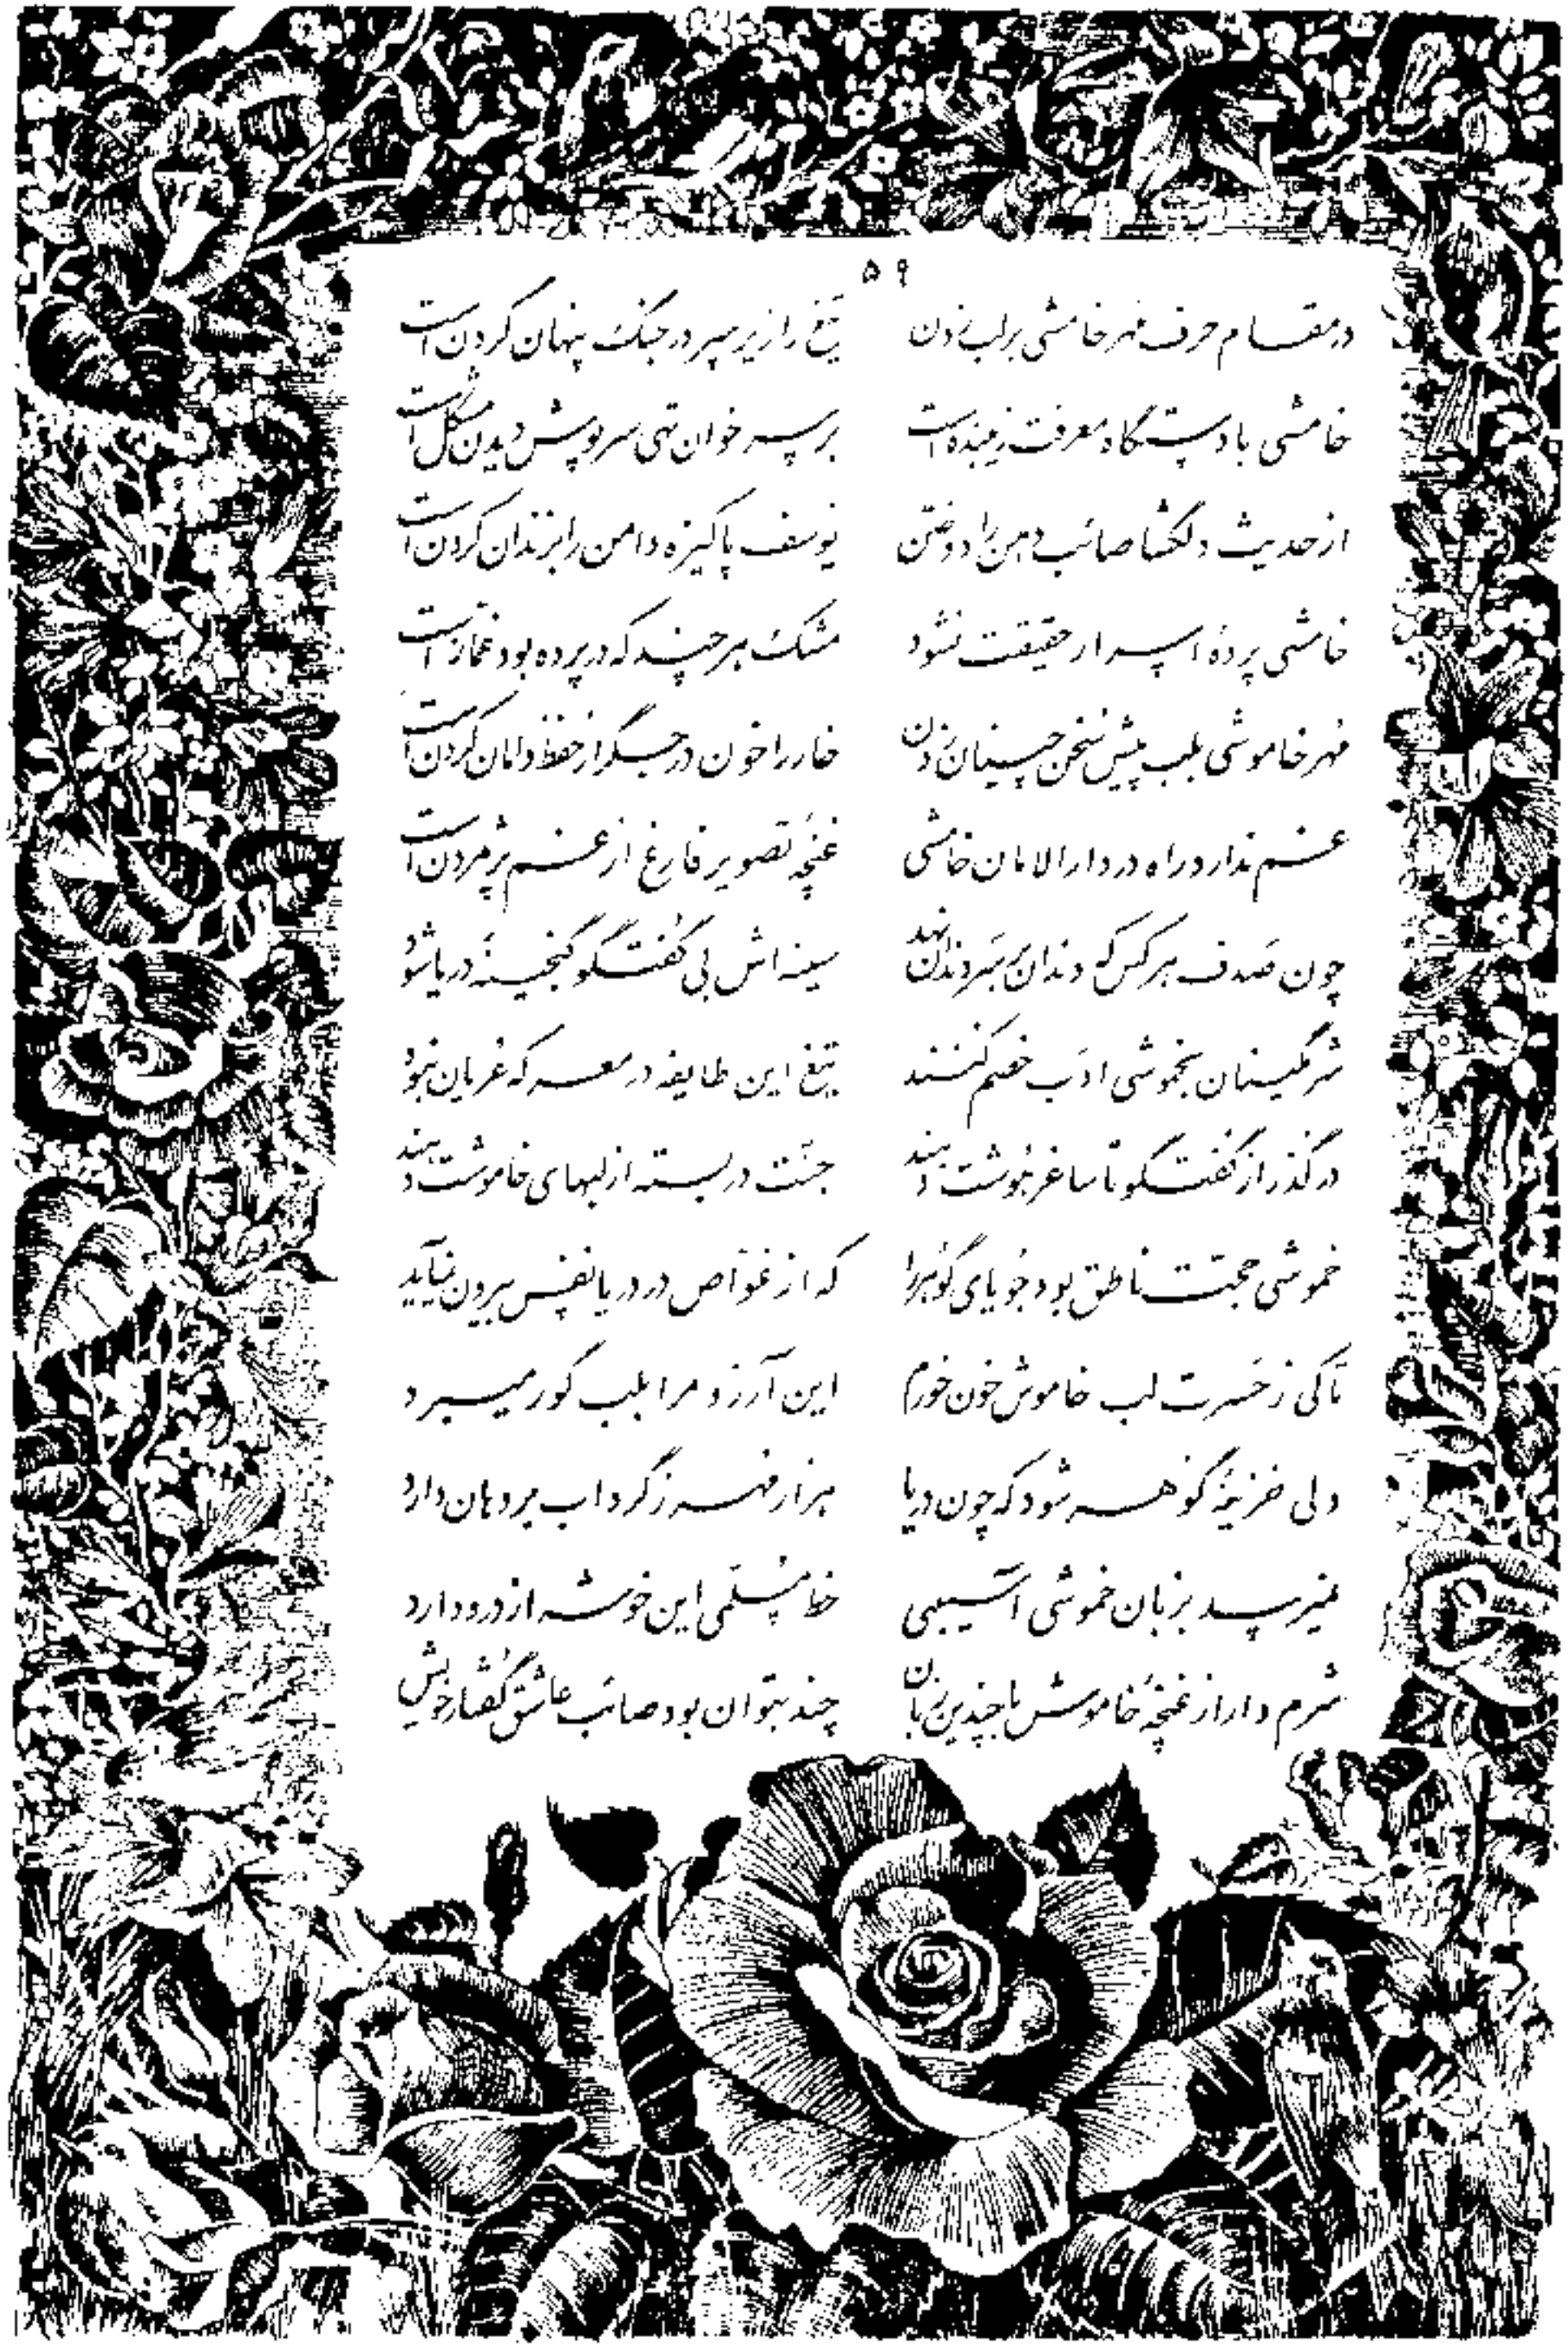 ۵۹
در مقام حرف مُهر خامشی بر لب زدن تیغ را زیر سپر در جنگ پنهان کردن است
خامشی با دستگاه معرفت زیبنده است بر سر خوان تهی سرپوش دیدن مشکل است
از حدیث دلگشا صائب دهن را دوختن یوسف پاکیزه دامن را بزندان کردن است
خامشی پردهٔ اسرار حقیقت نشود مشک هر چند که در پرده بود غمّاز است
مُهر خاموشی بلب پیش سُخن چینان زدن خار را خون در جگر از حفظ دامان کردن است
غم ندارد راه در دارالامان خامشی غنچهٔ تصویر فارغ از غم پژمردن است
چون صَدف هر کس که دندان بر سَر دندان نهد سینه اش بی گفتگو گنجینهٔ دریا شود
شرمگینان بخموشی ادَب خصم کنند تیغ این طایفه در معرکه عُریان نبوَد
درگذر از گفتگو تا ساغر هُوشت دهند جنّت در بسته از لبهای خاموشت دهند
خموشی حجّت ناطق بود جُویای گوهَر را که از غوّاص در دریا نفَس بیرون نمیآید
تا کی ز حَسرت لب خاموش خون خورم این آرزو مرا بلب گور میبرد
دلی خزینهٔ گوهر شود که چون دریا هزار مُهر ز گرداب بر دهان دارد
نمیرسد بزبان خموشی آسیبی خط مُسَلّمی این خوشه از درو دارد
شرم دار از غنچهٔ خاموش با چندین زبان چند بتوان بود صائب عاشق گُفتار خویش